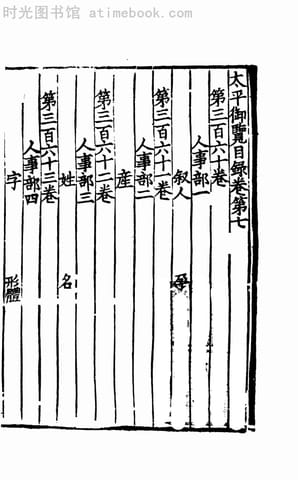 时光图书馆 atimebook.com
太平御覽目録卷第七
第三百六十卷
人事部一
叙人 孕
第三百六十一卷
人事部二
産
第三百六十二卷
人事部三
姓 名
第三百六十三卷
人事部四
字 形體
时光图书馆 atimebook.com